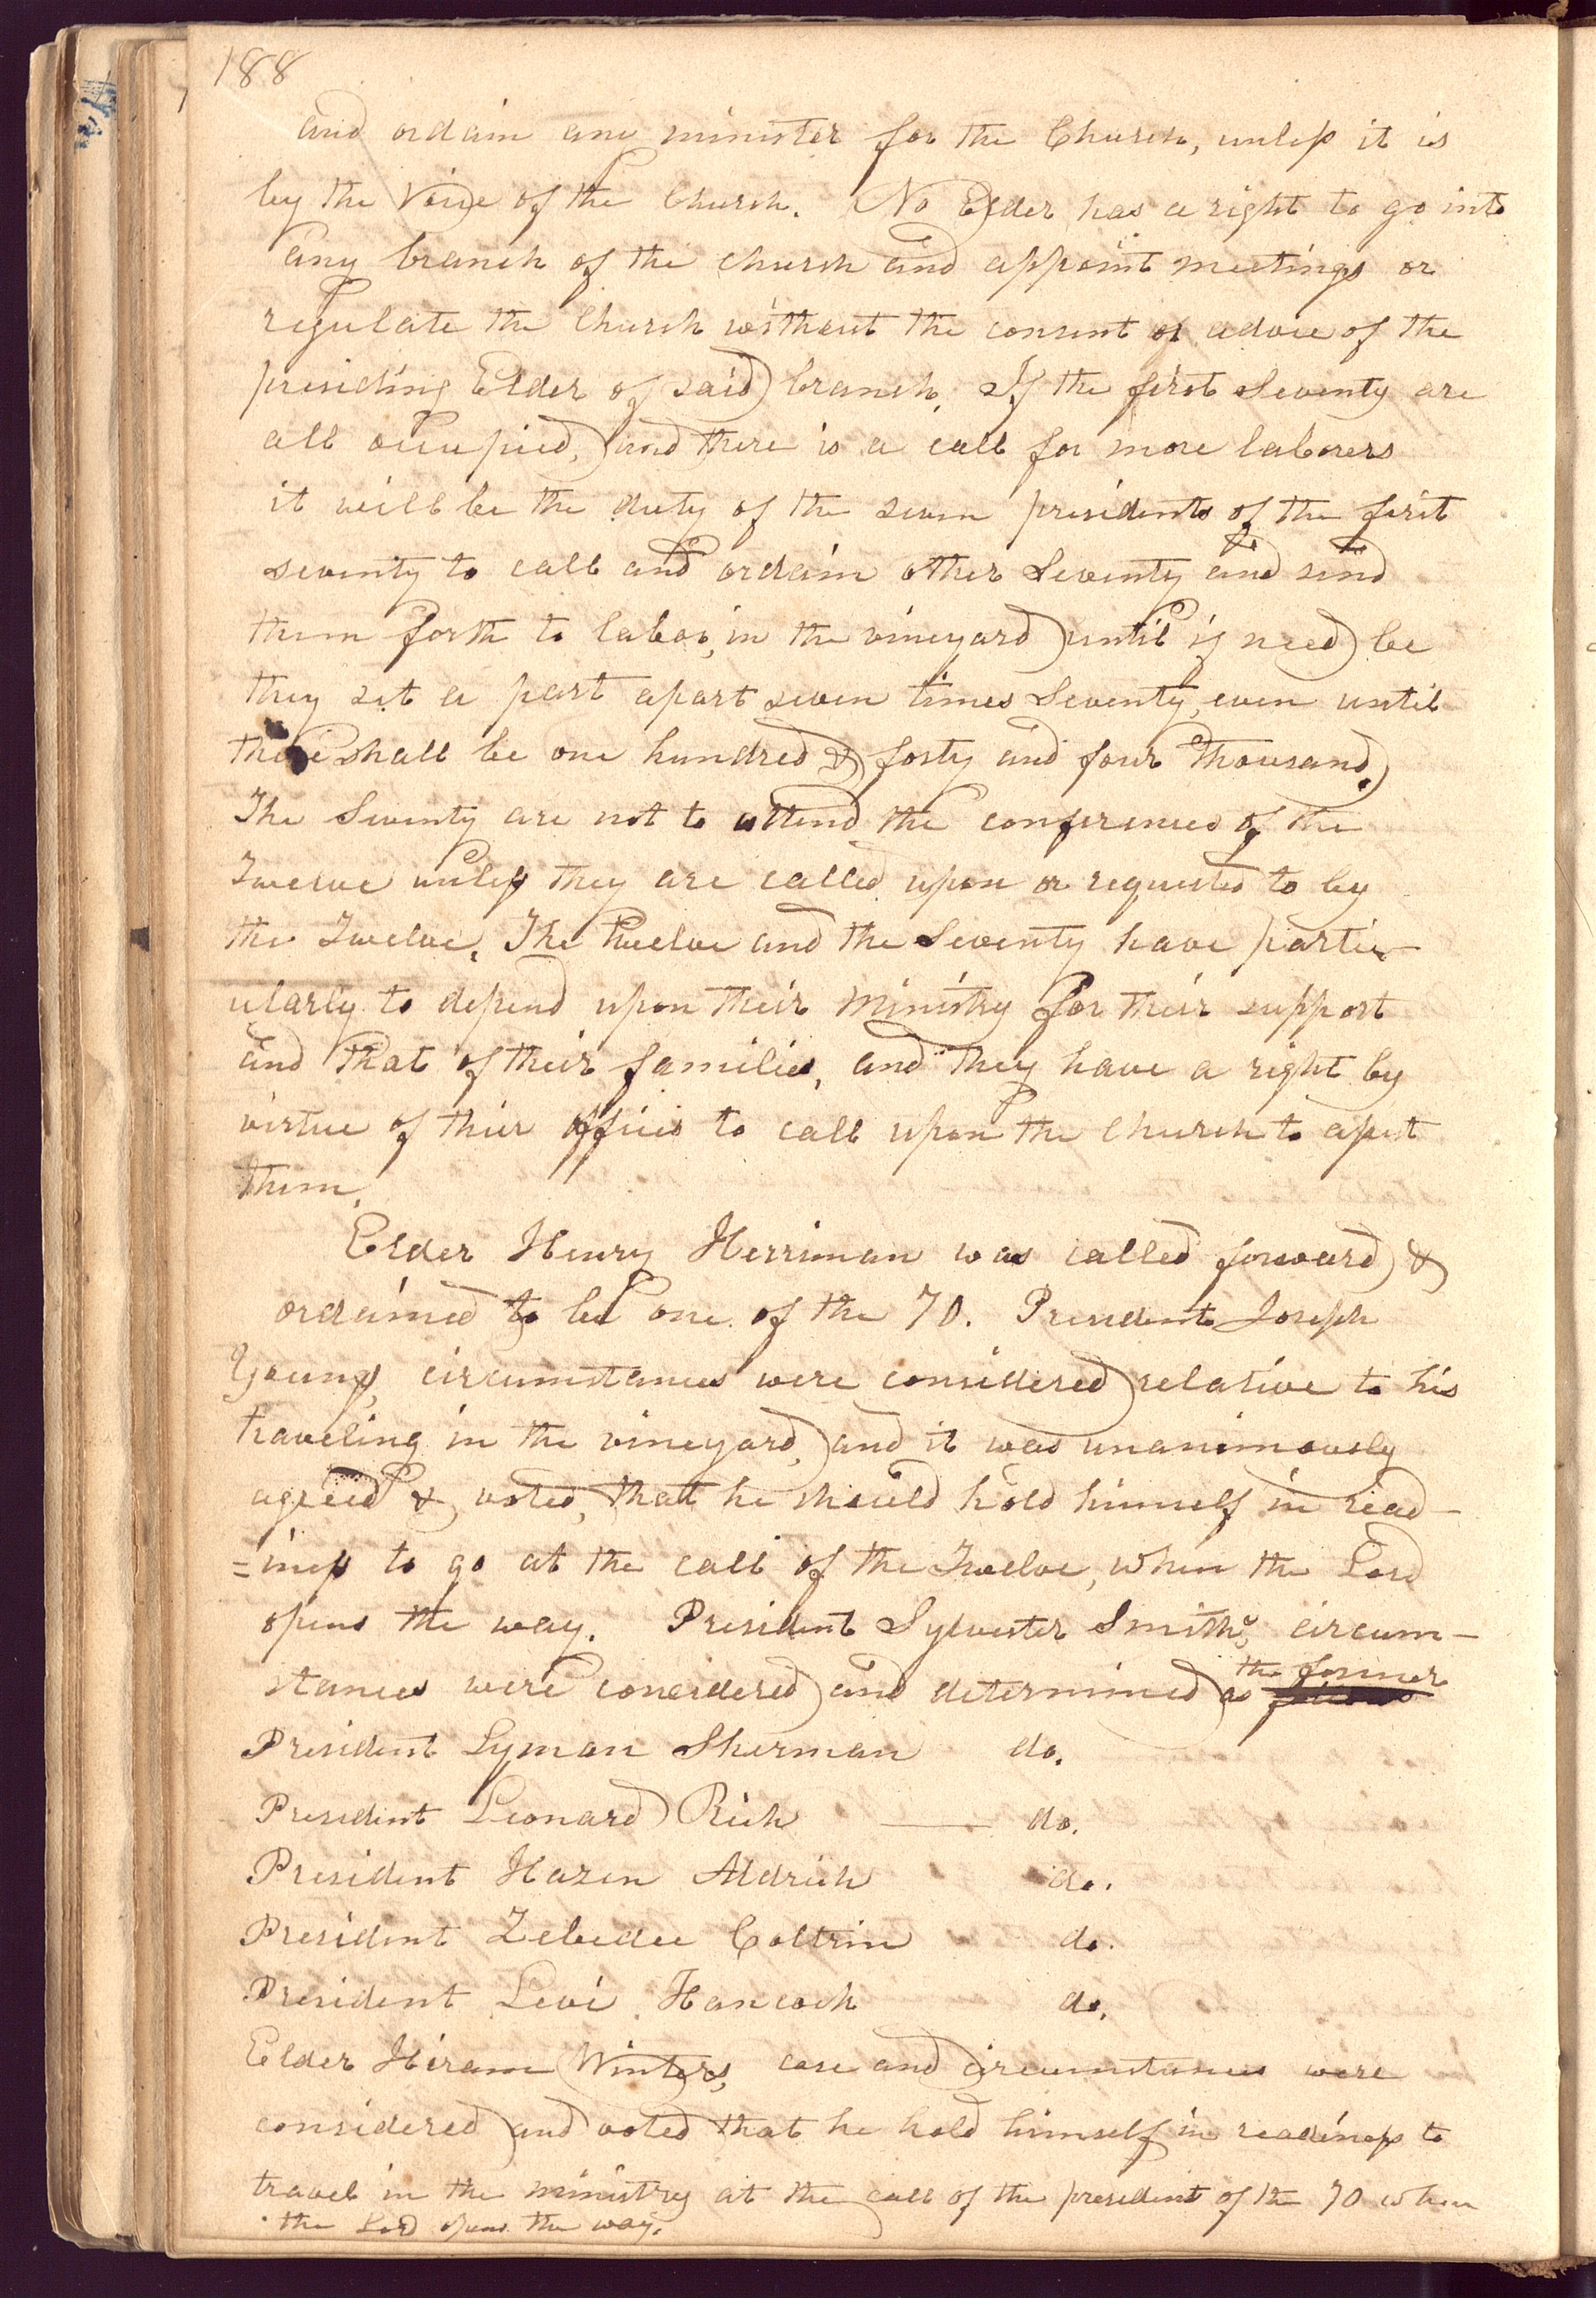 188
and ordain any minister for the Church, unless it is
by the voice of the Church. No Elder has a right to go into
any branch of the church and appoint meetings or
regulate the Church without the consent or advice of the
presiding Elder of said branch. If the first Seventy are
all occupied, and there is a call for more laborers
it will be the duty of the seven presidents of the first
seventy to call and ordain other Seventy and send
them forth to labor, in the vineyard until if need be
they set a part apart seven times Seventy, even until
there shall be one hundred & forty and four thousand.
The Seventy are not to attend the conferences of the
Twelve unless they are called upon or requested to by
the Twelve. The twelve and the Seventy have partic-
ularly to depend upon their Ministry for their support
and that of their families, and they have a right by
virtue of their offices to call upon the Church to assist
them.
Elder Henry Herriman was called forward &
ordained to be one of the 70. President Joseph
Youngs, circumstances were considered relative to his
traveling in the vineyard, and it was unanimously
agreed & voted, that he should hold himself in read-
=iness to go at the call of the Twelve, when the Lord
opens the way. President Sylvester Smiths, circum-
stances were considered and determined as the former
President Lyman Sherman do.
President Leonard Rich — do.
President Hazen Aldrich do.
President Zebedee Coltrin do.
President Levi Hancock do.
Elder Hiram Winters, case and circumstances were
considered and voted that he hold himself in readiness to
travel in the ministry at the call of the president of the 70 when
the Lord opens the way.